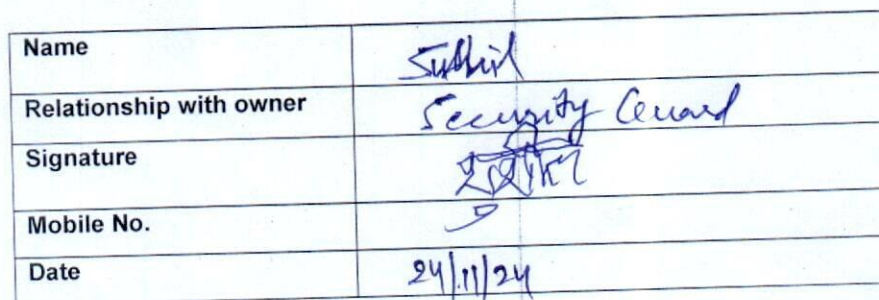 Name
Relationship with owner Security Guard
Signature
Mobile No.
Date 24/11/24